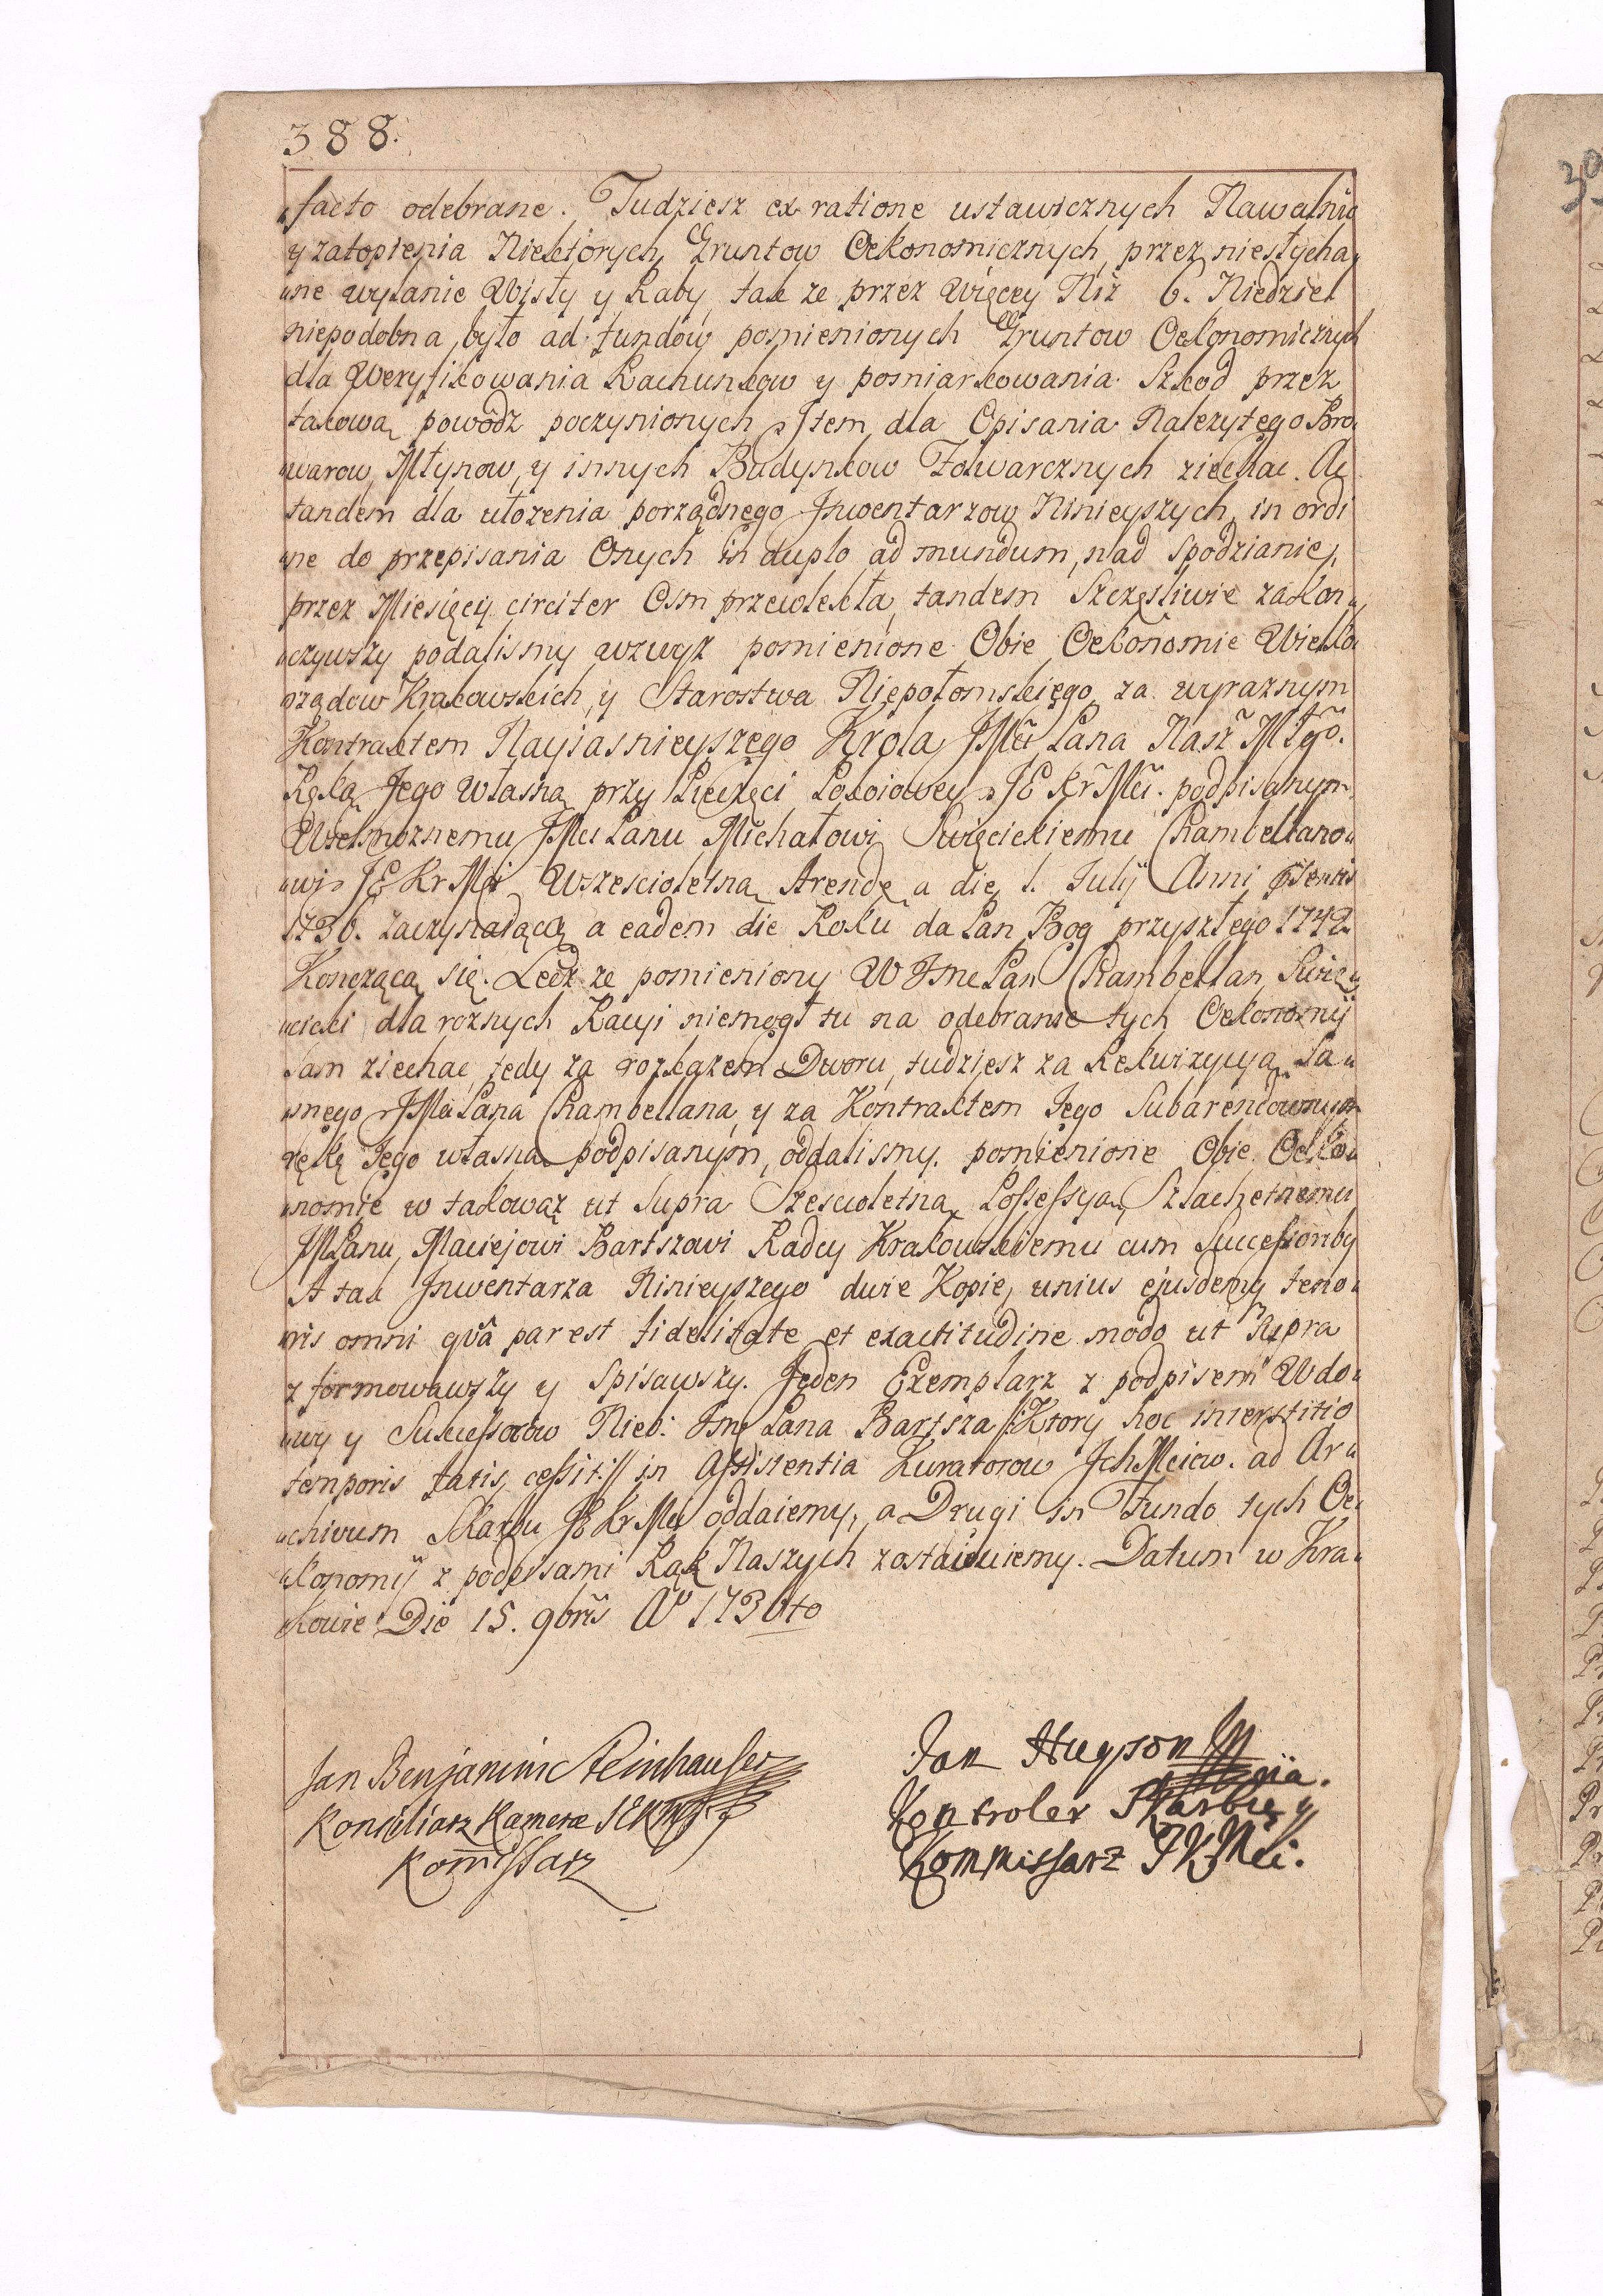 388.
facto odebrane. Tudziesz ex ratione ustawicznych Nawalnic
y zatopienia Niektórych Gruntow Oekonomicznych, przez niesłycha„
„ne wylanie Wisły y Raby, tak ze przez Więcey Niż 6. Niedziel
niepodobna było ad fundow pomienionych Gruntow Oekonomicznych
dla Weryfikowania Rachunkow y pomiarkowania Szkod przez
takową powódz poczynionych, Item dla Opisania Nalezytego Bro„
„warow, Młynow, y innych Budynkow Folwarcznych ziechac. Ac
tandem dla ułozenia porządnego Inwentarzow Ninieyszych, in ordi
„ne do przepisania Onych in duplo ad mundum, nad Spodzianie,
przez Miesięcy circiter Osm przewlekła, tandem Szczęsliwie zakon„
„czywszy podalismy wzwyż pomienione Obie Oekonomie Wielko„
„rządow Krakowskich, y Starostwa Niepołomskiego za wyraznym
Kontraktem Nayiasnieyszego Krola JMci Pana Nasz Młgō.
Ręką Jego Własną przy Pieczęci Pokoiowey JE Kr Mci. podpisanym,
Wielmoznemu JMci Panu Michałowi Swięcickiemu Chambellano„
„wi JE Kr Mci Wszescioletną Arendę a die 1. Julij Anni
1736. zaczynaiącą a eadem die Roku da Pan Bog przyszłego 1742.
Konczącą się. Lecz ze pomieniony W Jme Pan Chambellan Swię„
„cicki dla roznych Racyi niemogł tu na odebranie tych Oekonomij
Sam ziechac, tedy za rozkazem Dworu, tudziesz za Rekwizycyą Sa„
„mego JMci Pana Chambellana, y za Kontraktem Jego Subarendownym
ręką Jego własną podpisanym, oddalismy pomienione Obie Oeko„
„nomie w takowąz ut Supra Szescioletną Possessyą, Szlachetnemu
JMPanu, Maciejowi Bartszowi Radcy Krakowskiemu cum Successoribꝯ
A tak Inwentarza Ninieyszego dwie Kopie, unius ejusdemq, teno„
„ris omni qvâ par est fidelitate et exactitudine modo ut Supra
z formowawszy y Spisawszy. Jeden Exemplarz z podpisem Wdo„
„wy y Sukcessorow Nieb: Jme Pana Bartsza /:Ktory hoc interstitio
temporis fatis cessit:/ in Assistentia Kuratorow JchMciow. ad Ar„
„chivum Skarbu JE Kr Mci oddaiemy, a Drugi in Fundo tych Oe„
„konomij z podpisami Rąk Naszych zostawuiemy. Datum w Kra„
„kowie Die 15. 9bris Aº 1736to
Jan Benjamin Steinhauser
Konsiliarz Kamery JEKM
Kom̄issarz
Jan Hugson
Kontroler Skarbu y
Kommissarz JKMci.